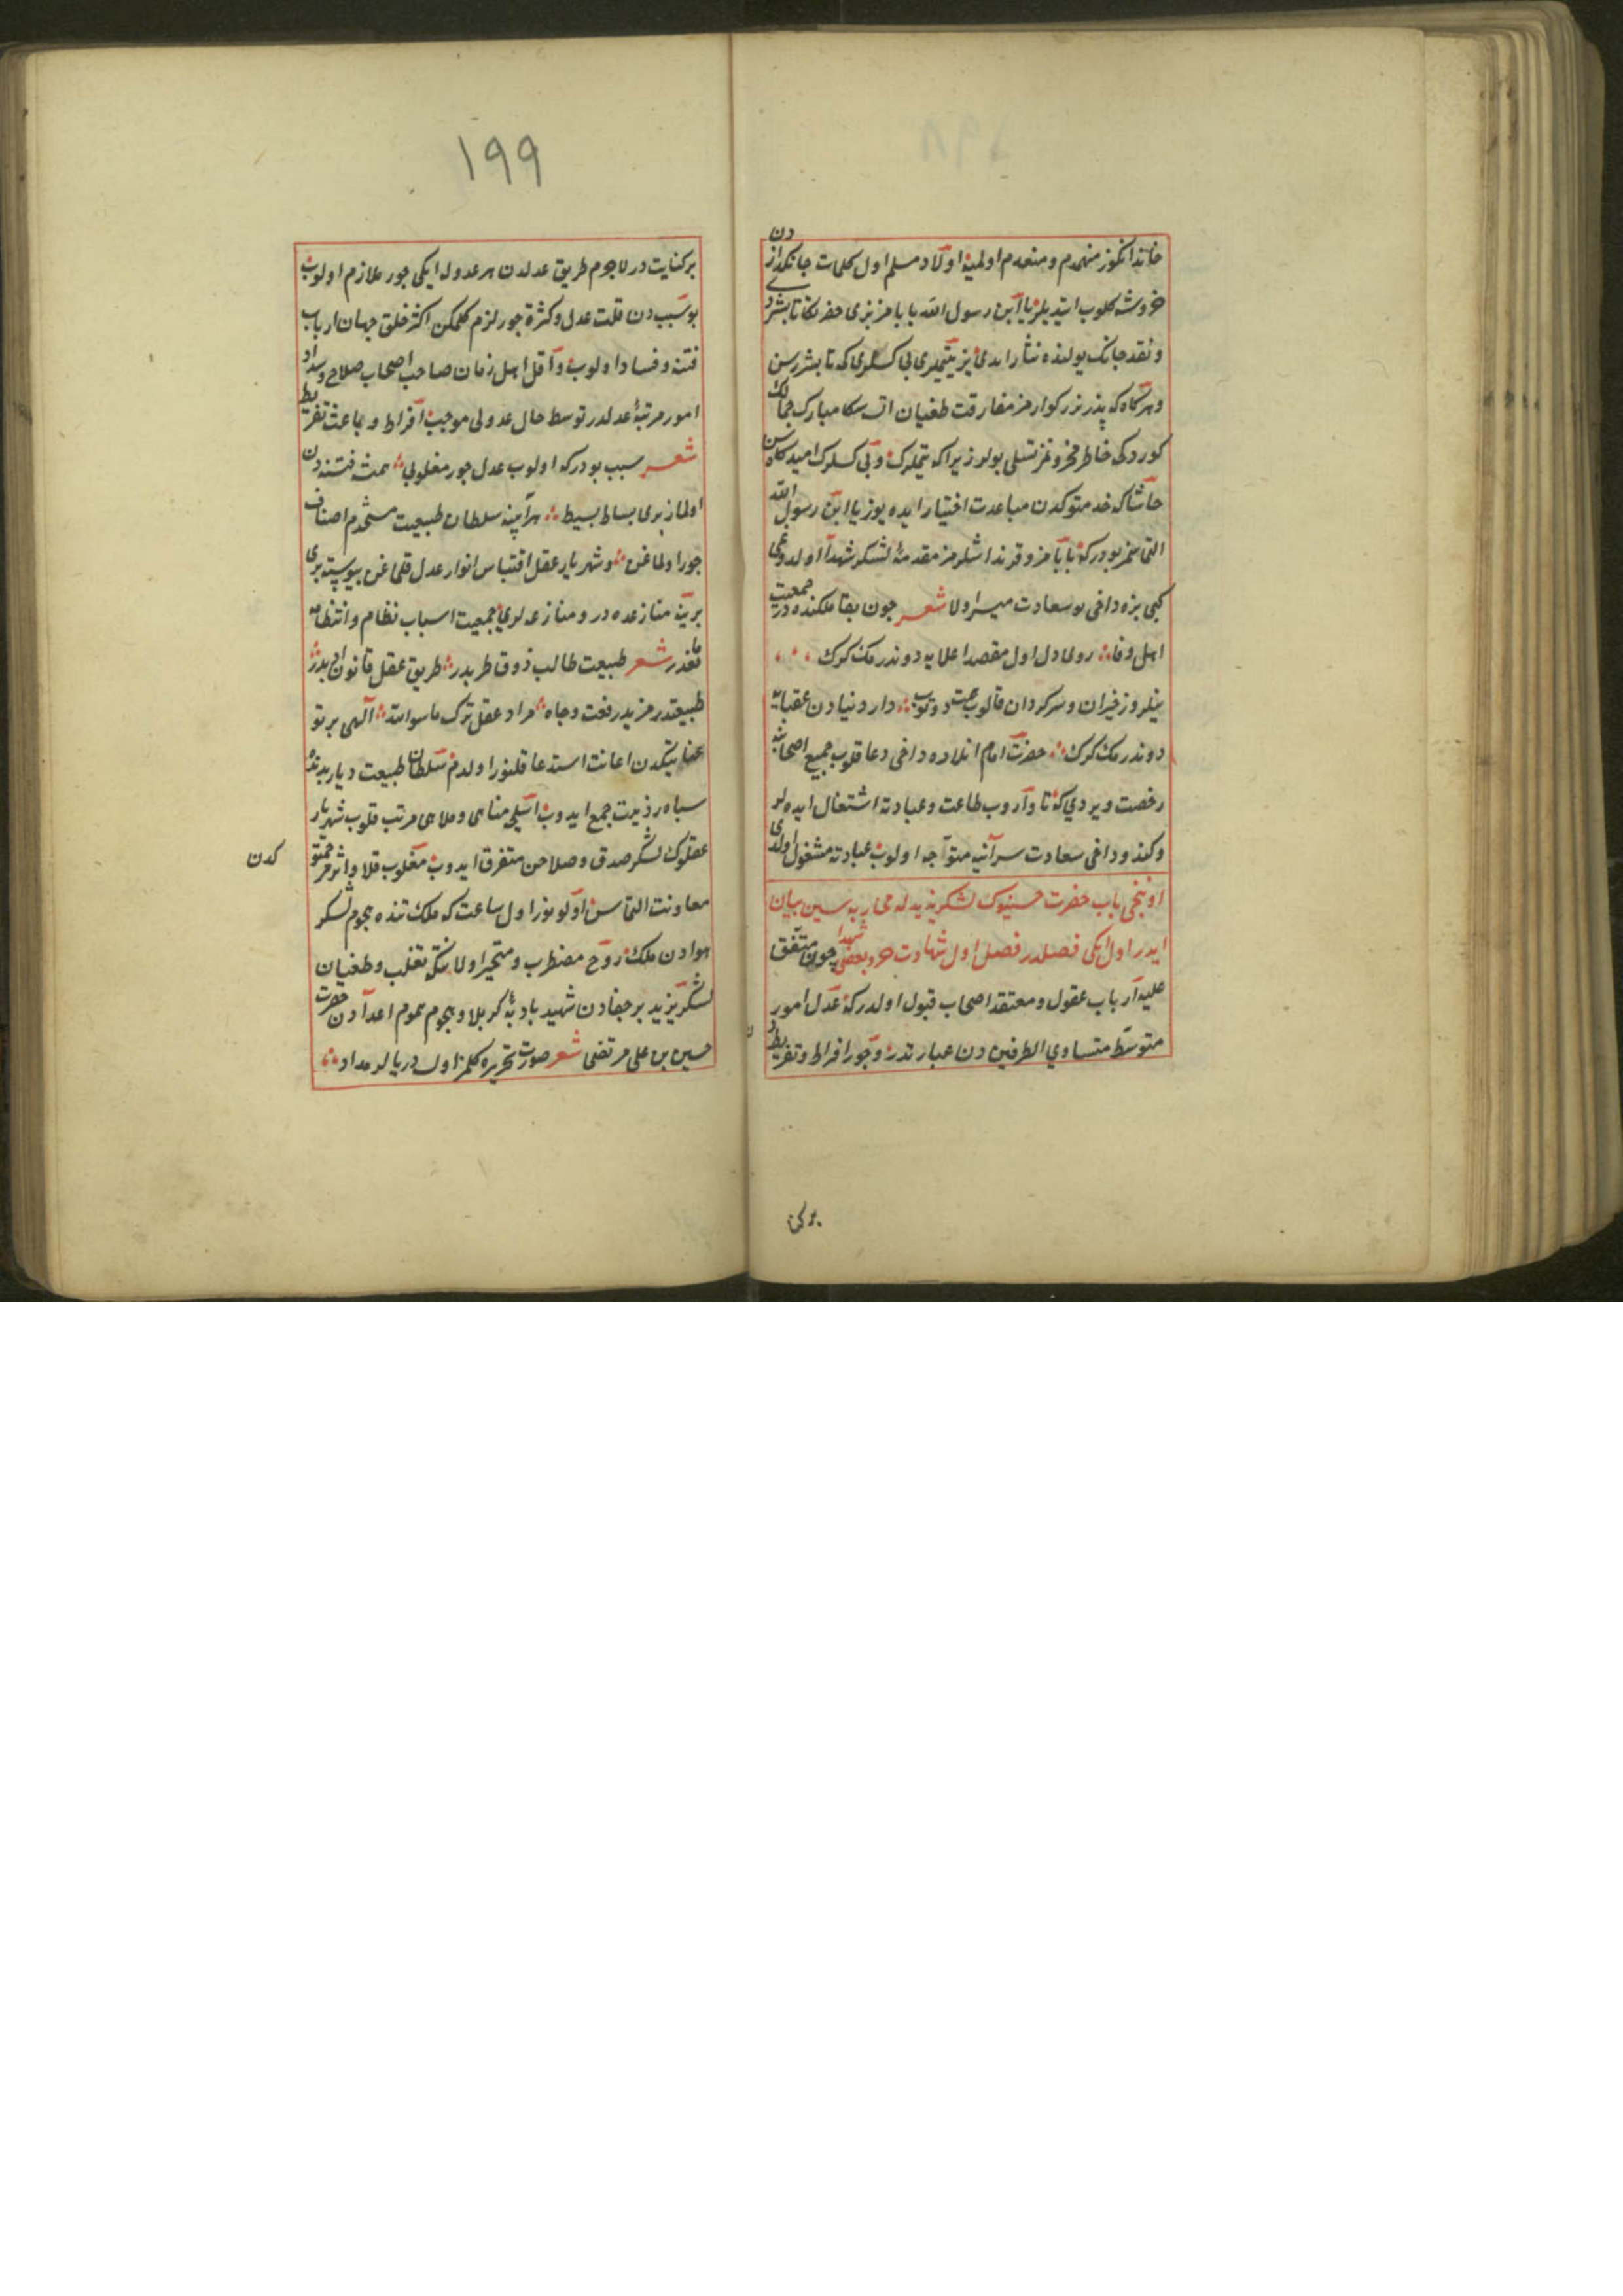 خاندانكوز منهدم و منعدم اولمیه اولاد مسلم اول كلمات جانكدازدن
خروشه كلوب ایتدیلر یا ابن رسول الله بابامز بزی حضرتكه تابشردی
و نقد جانك یولنده نثار ایدی بز یتیملری بی كسلری كه تابشررسن
و هر كاه كه پدر بزركوارمز مفارقت طغیان ایتسه سكا مبارك جمالك
كوردكی خاطر محزونمز تسلی بولور زیرا كه یتیملرك و بی كسلرك امیدكاهسن
حاشا كه خدمتوكدن مباعدت اختیار ایده یوز یا ابن رسول الله
التماسمز بودر كه بابامز و قرنداشلرمز مقدمهٔ لشكر شهدا اولدوغی
كبی بزه داخی بو سعادت میسر اولا شعر چون بقا ملكنده در جمعیت
اهل وفا روی دل اول مقصد اعلایه دوندرمك كرك
نیلروز حیران و سركردان قالوب محنت دوتوب دار دنیادن عقبایه
دوندرمك كرك حضرت امام انلاده داخی دعا قلوب جمیع اصحابنه
رخصت ویردی كه تا واروب طاعت و عبادته اشتغال ایده لر
و كندو داخی سعادت سرآینه متوجه اولوب عبادته مشغول اولدی
اوننجی باب حضرت حسینوك لشكر یزیدله محاربه سین بیان
ایدر اول ایكی فصلدر فصل اول شهادت حر و بعضی شهدا چون متفق
علیه ارباب عقول و معتقد اصحاب قبول اولدر كه عدل امور
متوسط متساوي الطرفین دن عبارتدر و جور افراط و تفریطدن
بركن
١٩٩
بركنایت در لاجرم طریق عدلدن هر عدوله ایكی جور ملازم اولوب
بو سببدن قلت عدل و كثرة جور لازم كلمكن اكثر خلق جهان ارباب
فتنه و فساد اولوب و اقل اهل زمان صاحب اصحاب صلاح و سداد
امور مرتبهٔ عدلدر توسط حال عدولی موجب افراط و باعث تفریط
شعر سبب بودر كه اولوب عدل جور مغلوبی همیشه فتنه دن
اولماز بری بساط بسیط هر آینه سلطان طبیعت مستخدم اصناف
جور اولماغن و شهریار عقل اقتباس انوار عدل قلماغن پیوسته بری
برینه منازعده در و منازعه لری جمعیت اسباب نظام و انتظامه
مانعدر شعر طبیعت طالب ذوق طربدر طریق عقل قانون ادبدر
طبیعتدر مزید رفعت و جاه مراد عقل ترك ماسوالله الهی پرتو
عنایتكدن اعانت استدعا قلنور اولدم كه سلطان طبیعت دیار بدنده
سپاه رذیلت جمع ایدوب اسلحهٔ مناهی و ملاهی مرتب قلوب شهریار
عقلوك لشكر صدق و صلاحن متفرق ایدوب مغلوب قلا و اثر رحمتو
كدن
معاونت التماسن اولونور اول ساعت كه ملك تنده هجوم لشكر
هوادن ملك روح مضطرب و متحیر اولا نیتكه تغلب و طغیان
لشكر یزید پر جفادن شهید بادیهٔ كربلا و هجوم هموم اعدادن حضرت
حسین بن علی مرتضی شعر صورت تحریره كلمز اولسه دریالر مداد